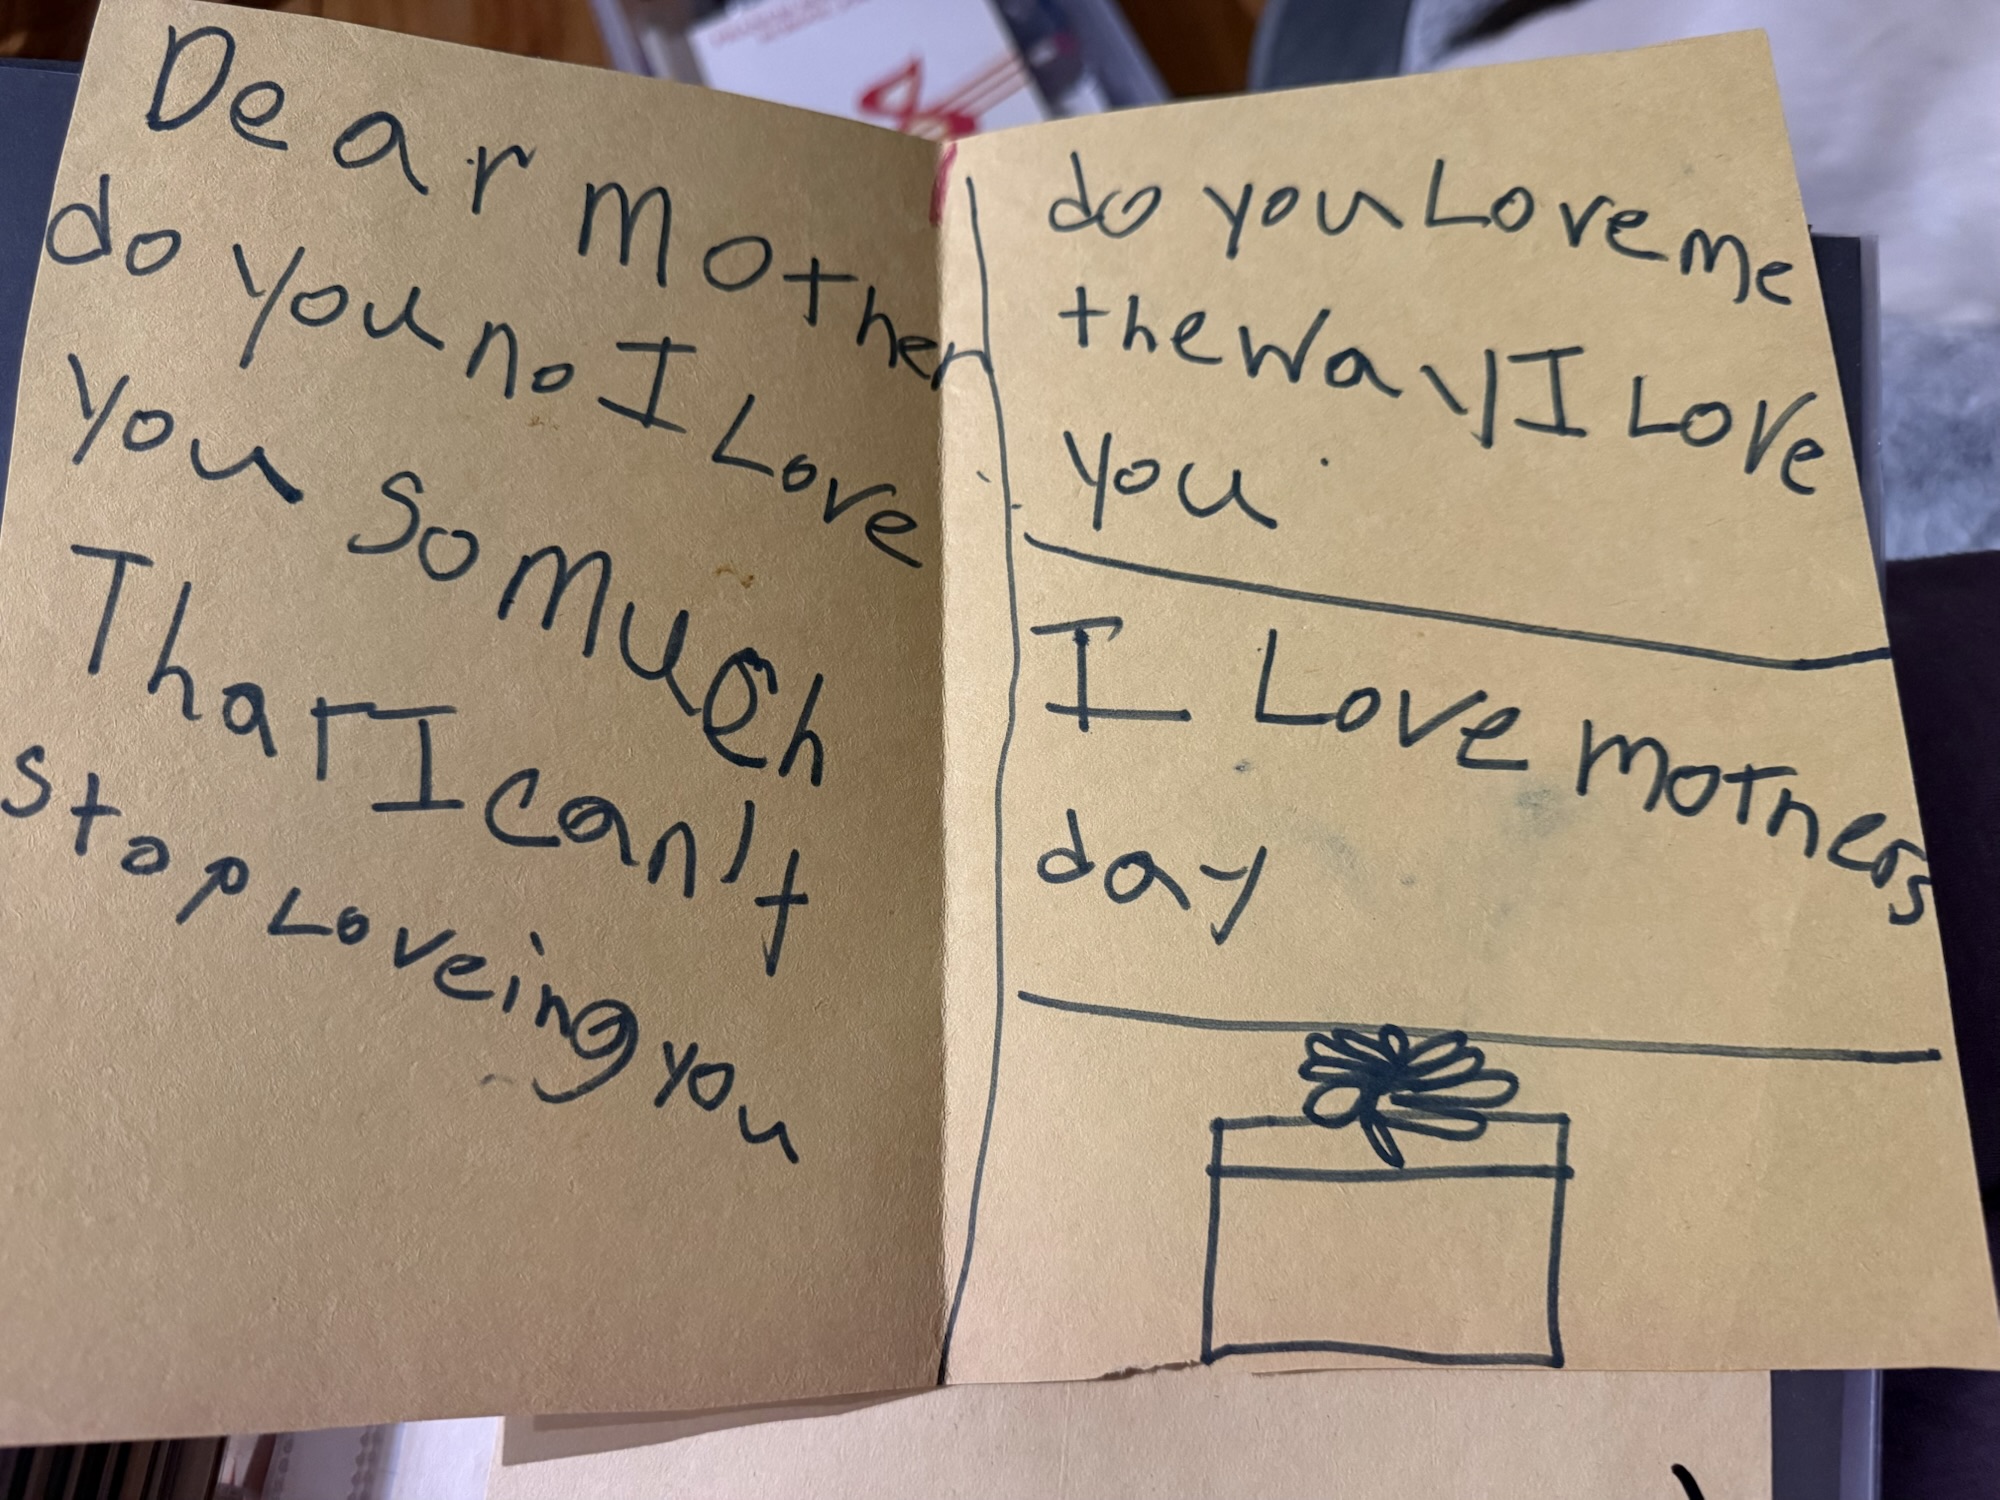 Dear Mother
do you no I Love
you so Much
That I can't
stop Loveing you
do you Love me
the way I Love
you.
I Love mothers
day